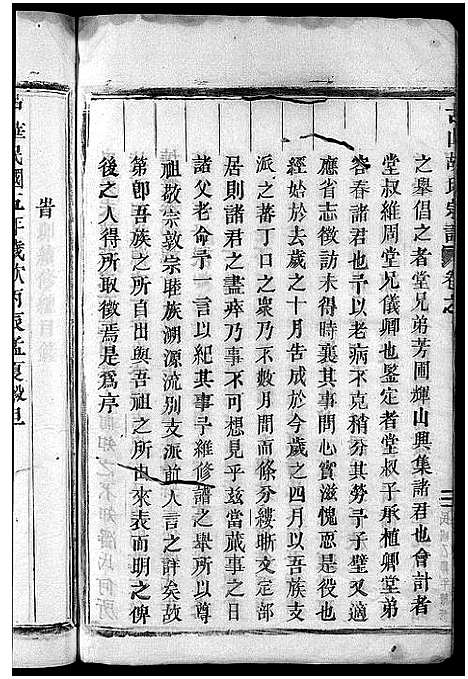 古山胡氏宗譜 卷之
之舉倡之者堂兄弟芳圃輝山興集諸君也會計者
堂叔維周堂兄儀卿也鑒定者堂叔子承植卿堂弟
蓉春諸君也予以老病不克稍分其勞予子璧又適
應省志徵訪未得時襄其事問心實滋愧恧是役也
始於去歲之十月告成於今歲之四月以吾族支
派之蕃丁口之衆乃不數月間而條分縷晰交定部
居則諸君之盡瘁乃事不可想見乎玆當蕆事之日
諸父老命予一言以紀其事予維修譜之舉所以尊
祖敬宗敦宗睦族溯源流別支派前人言之詳矣故
第卽吾族之所自出與吾祖之所由來表而明之俾
後之人得所取徵焉是爲序
旹
中華民國五年歲次丙辰孟夏穀旦